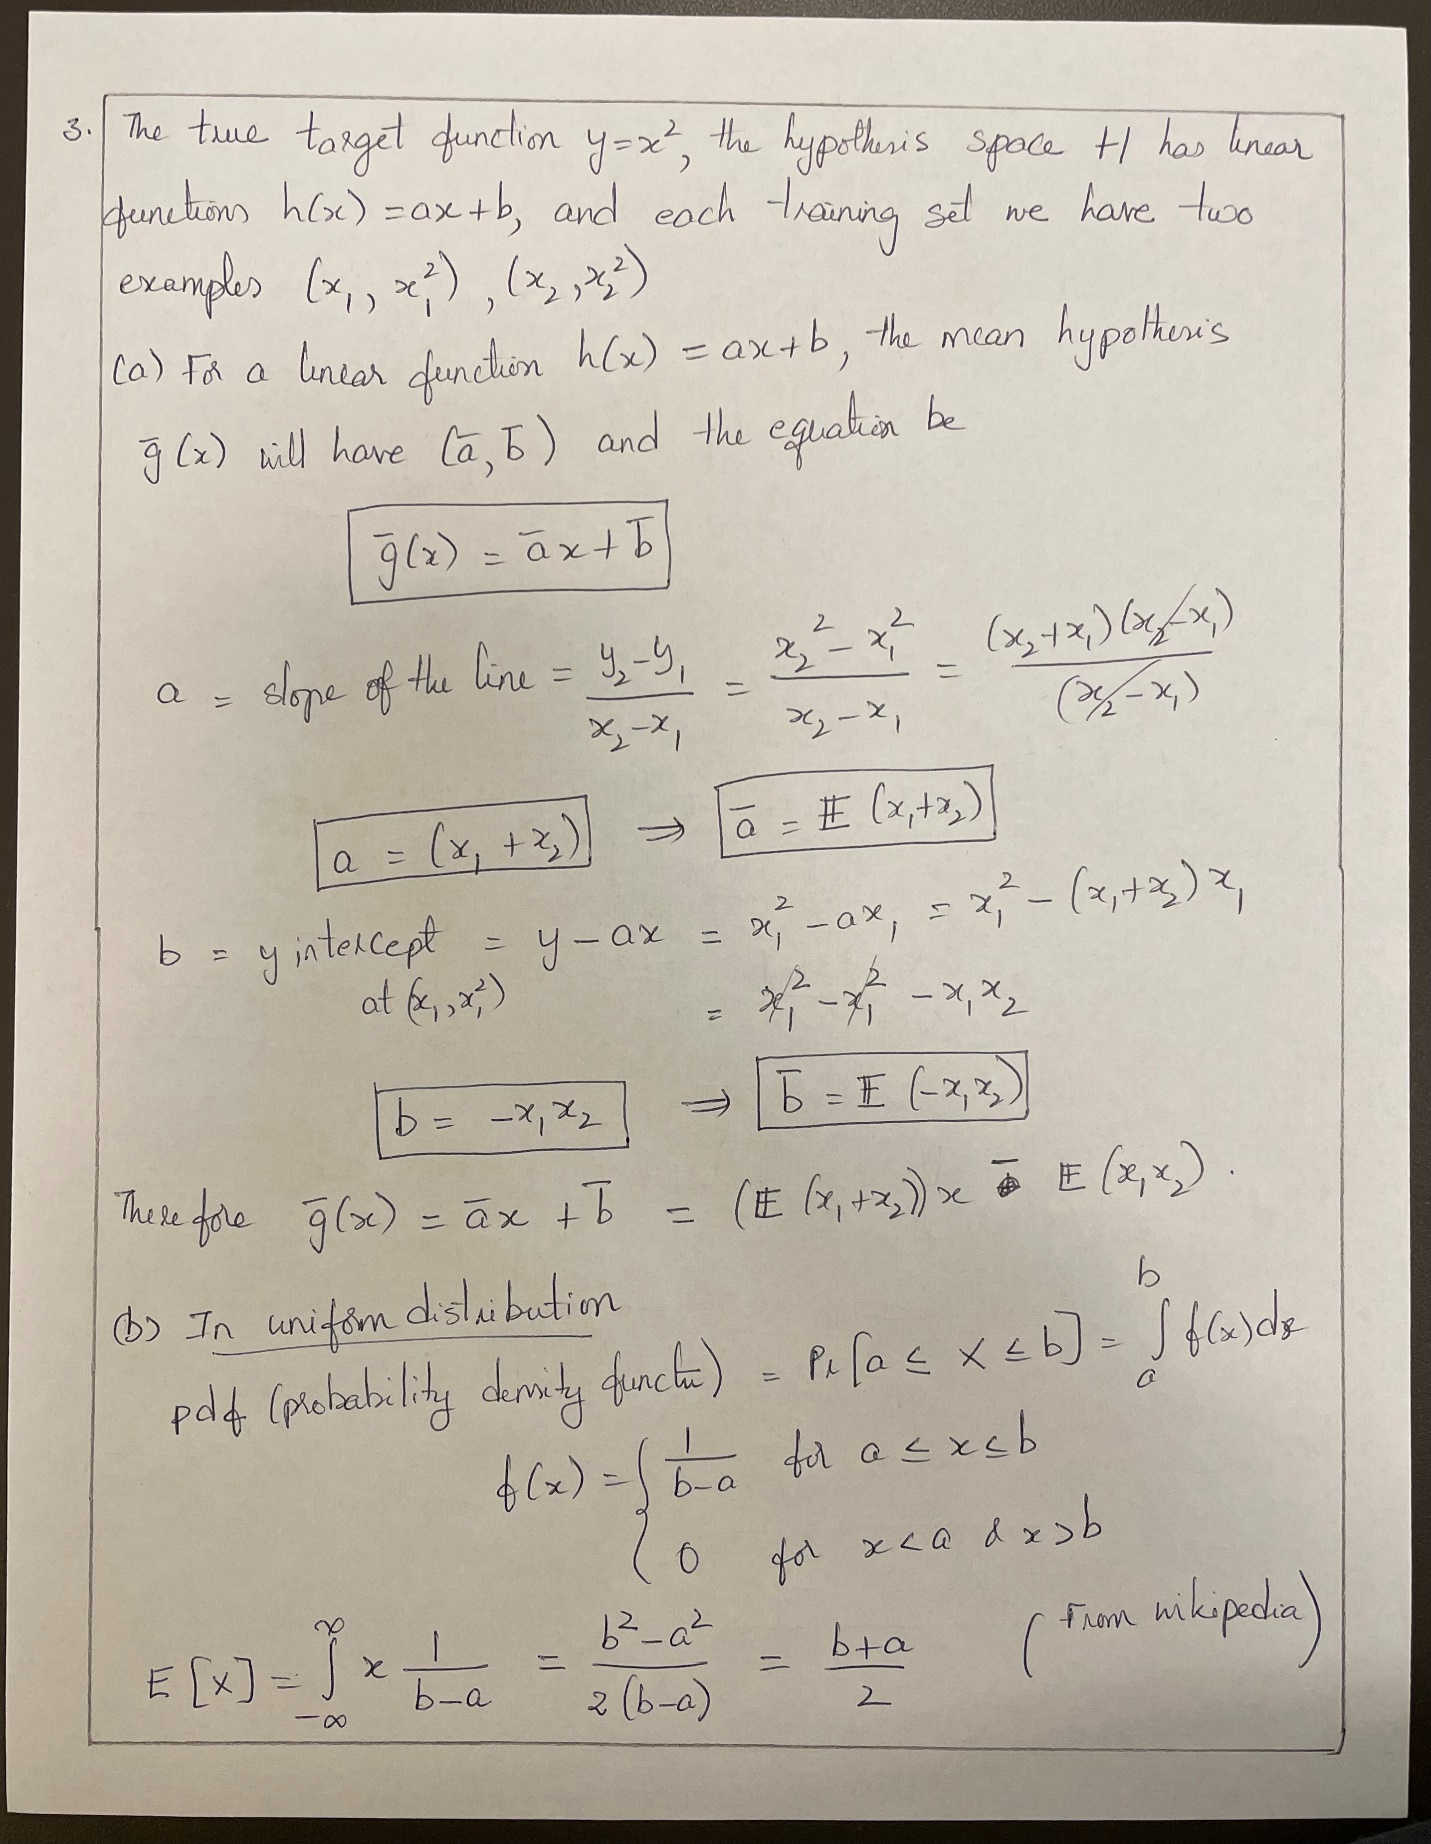 3. The true target function y=x², the hypothesis space H has linear
functions h(x) = ax+b, and each training set we have two
examples (x₁, x₁²), (x₂, x₂²)
(a) For a linear function h(x) = ax+b, the mean hypothesis
g̅(x) will have (a̅, b̅) and the equation be
g̅(x) = a̅x + b̅
a = slope of the line = (y₂-y₁)/(x₂-x₁) = (x₂² - x₁²)/(x₂-x₁) = (x₂+x₁)(x₂-x₁)/(x₂-x₁)
a = (x₁+x₂) ⇒ a̅ = 𝔼(x₁+x₂)
b = y intercept = y - ax = x₁² - ax₁ = x₁² - (x₁+x₂)x₁
at (x₁, x₁²) = x₁² - x₁² - x₁x₂
b = -x₁x₂ ⇒ b̅ = 𝔼(-x₁x₂)
Therefore g̅(x) = a̅x + b̅ = (𝔼(x₁+x₂))x - 𝔼(x₁x₂).
(b) In uniform distribution
pdf (probability density functn) = Pr[a ≤ X ≤ b] = ∫ₐᵇ f(x)dx
f(x) = { 1/(b-a) for a ≤ x ≤ b
0 for x<a & x>b
E[X] = ∫_{-∞}^{∞} x 1/(b-a) = (b²-a²)/(2(b-a)) = (b+a)/2 (From wikipedia)